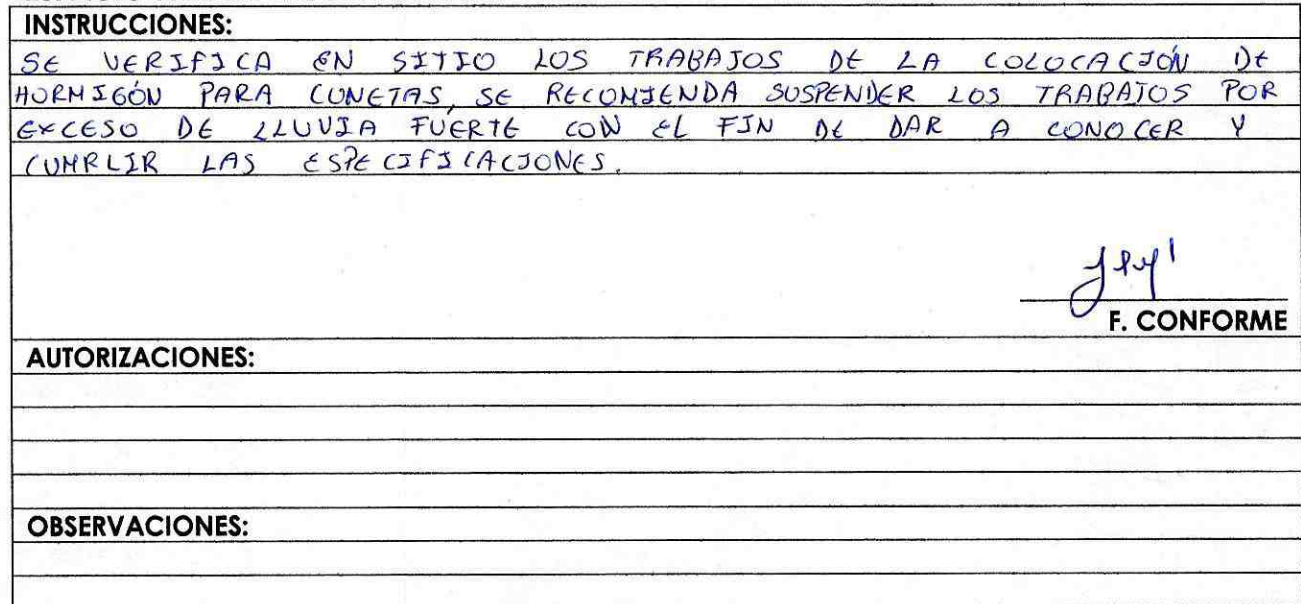 INSTRUCCIONES:
SE VERIFICA EN SITIO LOS TRABAJOS DE LA COLOCACIÓN DE
HORMIGÓN PARA CUNETAS, SE RECOMIENDA SUSPENDER LOS TRABAJOS POR
EXCESO DE LLUVIA FUERTE CON EL FIN DE DAR A CONOCER Y
CUMPLIR LAS ESPECIFICACIONES.
F. CONFORME
AUTORIZACIONES:
OBSERVACIONES: